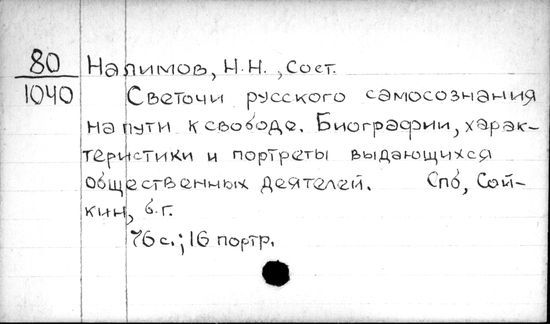 80 Налимов, Н.Н., сост.
1040 Светочи русского самосознания
на пути к свободе. Биографии, харак-
теристики и портреты выдающихся
общественных деятелей. Спб, Сой-
кин, б.г.
76 с.; 16 портр.